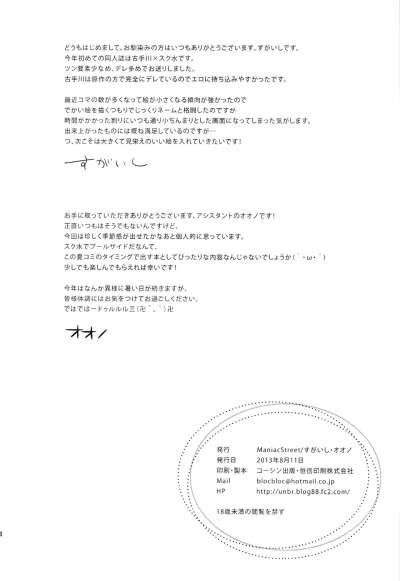 どうもはじめまして、お馴染みの方はいつもありがとうございます。すがいしです。
今年初めての同人誌は古手川×スク水です。
ツン要素少なめ、デレ多めでお送りしました。
古手川は原作の方で完全にデレているのでエロに持ち込みやすかったです。
最近コマの数が多くなって絵が小さくなる傾向が強かったので
でかい絵を描くつもりでじっくりネームと格闘したのですが
時間がかかった割りにいつも通り小ぢんまりとした画面になってしまった気がします。
出来上がったものには概ね満足しているのですが…
つ、次こそは大きくて見栄えのいい絵を入れていきたいです!
すがいし
お手に取っていただきありがとうございます、アシスタントのオオノです!
正直いつもはそうでもないんですけど、
今回は珍しく季節感が出せたかなあと個人的に思っています。
スク水でプールサイドだなんて、
この夏コミのタイミングで出す本としてぴったりな内容なんじゃないでしょうか(｀・ω・´)
少しでも楽しんでもらえれば幸いです!
今年はなんか異様に暑い日が続きますが、
皆様体調にはお気をつけてお過ごしください。
ではではードゥルルル三(卍^、^)卍
オオノ
発行 ManiacStreet/すがいし・オオノ
発行日 2013年8月11日
印刷・製本 コーシン出版・恒信印刷株式会社
Mail blocbloc@hotmail.co.jp
HP http://unbr.blog88.fc2.com/
18歳未満の閲覧を禁ず